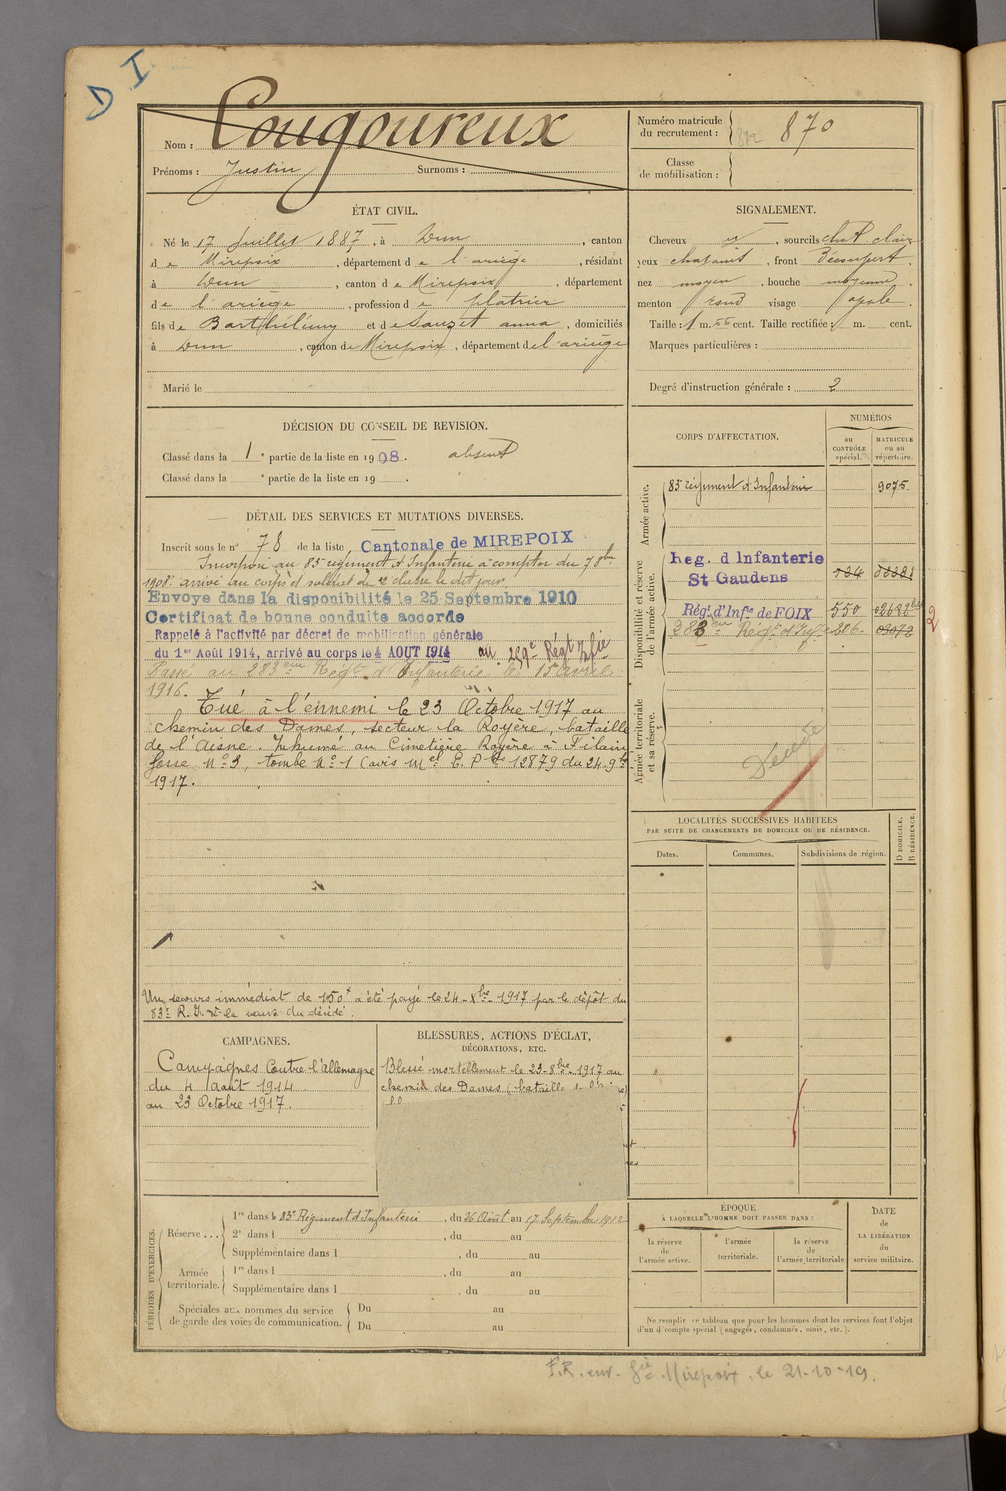 D I
Nom : Cougoureux
Prénoms : Justin Surnoms :
Numéro matricule du recrutement : 870
Classe de mobilisation :
ÉTAT CIVIL.
Né le 17 Juillet 1887, à Dun, canton
de Mirepoix, département de l'ariège, résidant
à Dun, canton de Mirepoix, département
de l'ariège, profession de platrier
fils de Barthélémy et de Sauzet anna, domiciliés
à Dun, canton de Mirepoix, département de l'ariège
Marié le
SIGNALEMENT.
Cheveux et, sourcils chat clair
yeux chatains, front Découvert,
nez moyen, bouche moyenne,
menton rond visage ovale.
Taille : 1 m. 55 cent. Taille rectifiée : m. cent.
Marques particulières :
Degré d'instruction générale : 2
DÉCISION DU CONSEIL DE REVISION.
Classé dans la 1e partie de la liste en 1908. absent
Classé dans la e partie de la liste en 19 .
DÉTAIL DES SERVICES ET MUTATIONS DIVERSES.
Inscrit sous le n° 78 de la liste Cantonale de MIREPOIX
Incorporé au 83e régiment d'Infanterie à compter du 7 8bre
1908. arrivé au corps et soldat de 2e classe le dit jour.
Envoyé dans la disponibilité le 25 Septembre 1910
Certificat de bonne conduite accordé
Rappelé à l'activité par décret de mobilisation générale
du 1er Août 1914, arrivé au corps le 4 AOUT 1914 au 259e Régt Inf ie
Passé au 283eme Régt d'Infanterie le 15 avril
1916.
Tué à l'ennemi le 23 Octobre 1917 au
chemin des Dames, secteur la Royère, bataille
de l'Aisne. Inhumé au Cimetière Royère à Filain
fosse N° 3, tombe N° 1 (avis Mel E. P. 12879 du 24-9bre
1917.
Un secours immédiat de 150f a été payé le 24-8bre-1917 par le dépôt du
83e R.I. à la veuve du décédé.
CORPS D'AFFECTATION.
NUMÉROS
AU CONTRÔLE spécial.
MATRICULE ou au répertoire.
Armée active.
83e régiment d'Infanterie 9075.
Disponibilité et réserve de l'armée active.
Reg. d Infanterie
St Gaudens
Régt. d'Infie de FOIX 550
283eme Régt d'Infie 286. 03072
2
Armée territoriale et sa réserve.
Décédé
LOCALITÉS SUCCESSIVES HABITÉES
PAR SUITE DE CHANGEMENTS DE DOMICILE OU DE RÉSIDENCE.
Dates. Communes. Subdivisions de région. D DOMICILE. R RÉSIDENCE.
CAMPAGNES.
Campagnes Contre l'allemagne
du 4 août 1914
au 23 Octobre 1917.
BLESSURES, ACTIONS D'ÉCLAT,
DÉCORATIONS, ETC.
Blessé mortellement le 23-8bre-1917 au
chemin des Dames (bataille
PÉRIODES D'EXERCICES.
Réserve ... 1re dans le 83e Régiment d'Infanterie, du 26 Août au 17 Septembre 1912
2e dans l , du au
Supplémentaire dans l , du au
Armée territoriale. 1re dans l , du au
Supplémentaire dans l , du au
Spéciales aux hommes du service de garde des voies de communication. Du au
Du au
ÉPOQUE
À LAQUELLE L'HOMME DOIT PASSER DANS :
la réserve de l'armée active.
l'armée territoriale.
la réserve de l'armée territoriale
DATE de LA LIBÉRATION du service militaire.
Ne remplir ce tableau que pour les hommes dont les services font l'objet
d'un décompte spécial (engagés, condamnés, omis, etc.).
F.R. env. Gie Mirepoix. le 21-10-19.